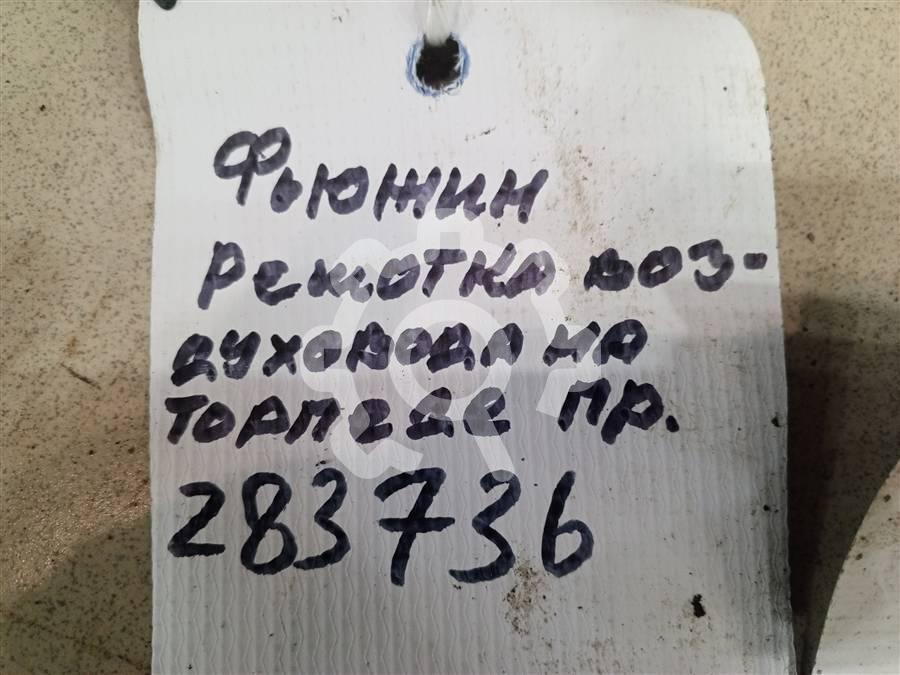 Фьюжин
Решотка воз-
духовода на
торпеде пр.
283736